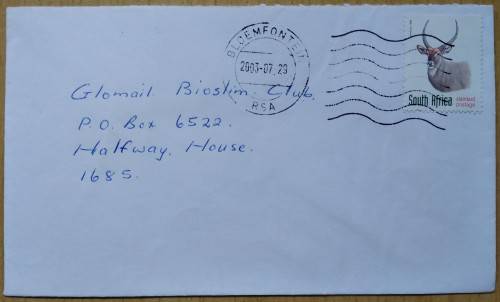 BLOEMFONTEIN
2003-07.29
RSA
South Africa
standard
postage
Glomail Bioslim Club.
P.O. Box 6522.
Halfway. House.
1685.